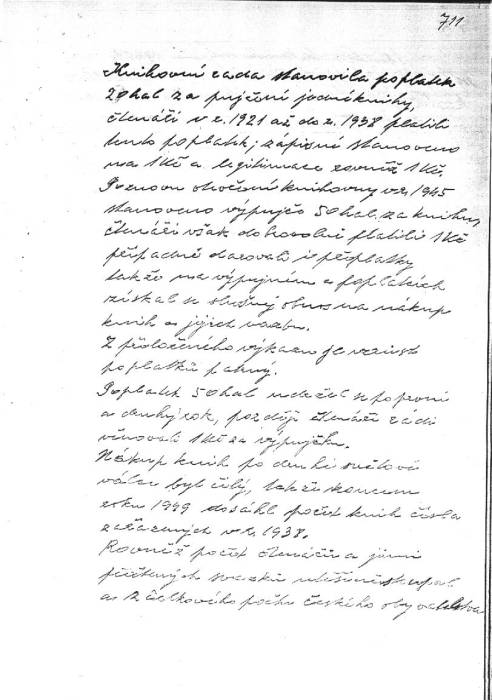 711
Knihovní rada stanovila poplatek
20 hal za pujčení jedné knihy,
čtenáři v r. 1921 až do r. 1938 platili
tento poplatek; zápisné stanoveno
na 1Kč a legitimace rovněž 1Kč.
Po znovu otvoření knihovny v r. 1945
stanoveno výpujč. 50 hal. za knihu,
čtenáři však dobrovolně platili 1Kč
případně darovali i příplatky
takže na výpujném a poplatcích
získal se slušný obnos na nákup
knih a jejich vazbu.
Z přiloženého výkazu je vzrůst
poplatků patrný.
Poplatek 50 hal udržel se poprvní
a druhý rok, později čtenáři rádi
věnovali 1Kč za výpujčku.
Nákup knih po druhé světové
válce byl čilý, takže koncem
roku 1949 dosáhl počet knih čísla
zařazených v r. 1938.
Rovněž počet čtenářů a jimi
přečtených svazků utěšeně stoupal
a z celkového počtu českého obyvatelstva